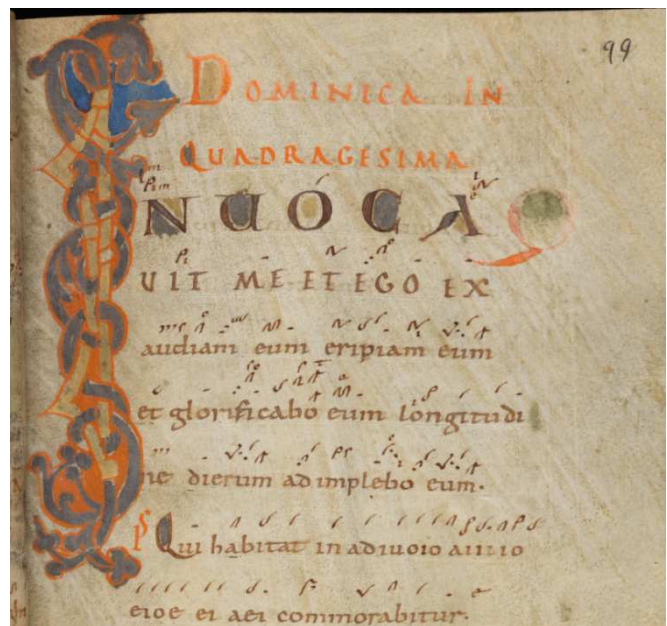 99
DOMINICA IN
QUADRAGESIMA
INUOCA
UIT ME ET EGO EX
audiam eum eripiam eum
et glorificabo eum longitudi
ne dierum adimplebo eum.
PS Qui habitat in adiuoio aiuiio
eioe ei aei commorabitur.